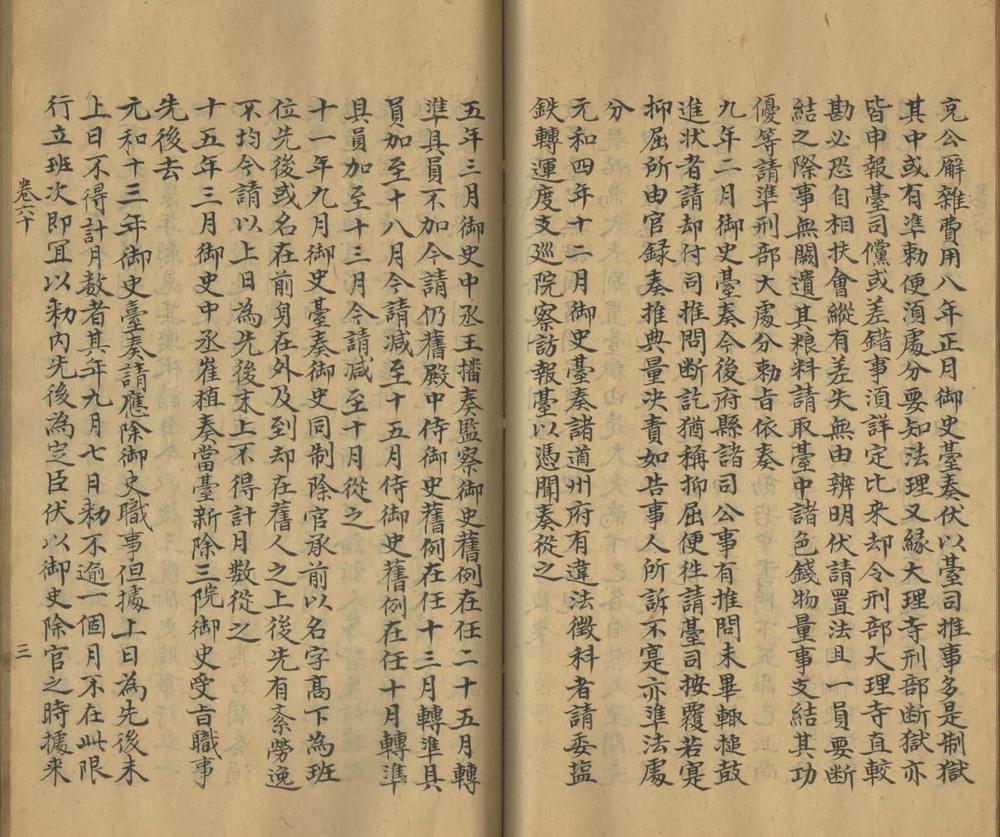 充公廨雜費用八年正月御史臺奏伏以臺司推事多是制獄
其中或有准勅便湏處分要知法理又緣大理寺刑部断獄亦
皆申報臺司儻或差錯事湏詳定比来却令刑部大理寺直較
勘必恐自相扶會縱有差失無由辨明伏請置法直一員要断
結之際事無闕遺其粮料請取臺中諸色錢物量事支結其功
優等請準刑部大處分勅旨依奏
九年二月御史臺奏今後府縣諸司公事有推問未畢輙撾鼓
進狀者請却付司推問断訖猶稱抑屈便徃請臺司按覆若寔
抑屈所由官録奏推典量决責如告事人所訴不寔亦準法處
分
元和四年十二月御史臺奏諸道州府有違法徴科者請委塩
鉄轉運度支廵院察訪報臺以憑聞奏從之
五年三月御史中丞王播奏監察御史舊例在任二十五月轉
準具員不加今請仍舊殿中侍御史舊例在任十三月轉準具
員加至十八月今請减至十五月侍御史舊例在任十月轉準
具員加至十三月今請减至十月從之
十一年九月御史臺奏御史同制除官承前以名字髙下為班
位先後或名在前身在外及到却在舊人之上後先有紊勞逸
不均今請以上日為先後末上不得計月数從之
十五年三月御史中丞崔植奏當臺新除三院御史受旨職事
先後去
元和十三年御史臺奏請應除御史職事但據上日為先後未
上日不得計月数者其年九月七日勅不逾一個月不在此限
行立班次即冝以勅内先後為定臣伏以御史除官之時據来
卷六十
三